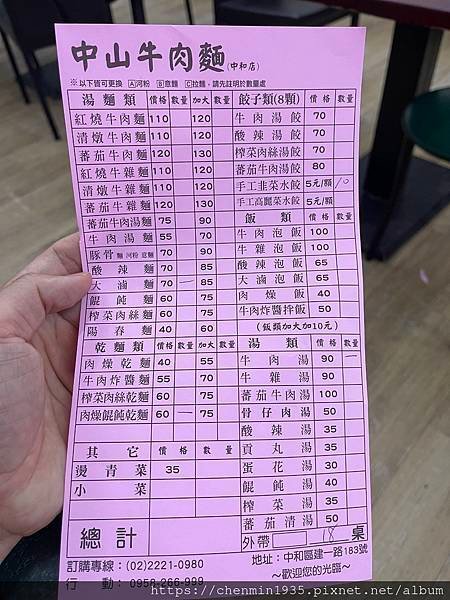 中山牛肉麵(中和店)
※以下皆可更換 Ⓐ河粉 Ⓑ意麵 Ⓒ拉麵，請先註明於數量處
湯麵類 價格 數量 加大 數量
紅燒牛肉麵 110 120
清燉牛肉麵 110 120
蕃茄牛肉麵 120 130
紅燒牛雜麵 110 120
清燉牛雜麵 110 120
蕃茄牛雜麵 120 130
蕃茄牛肉湯麵 75 90
牛肉湯麵 55 70
豚骨 麵 河粉 意麵 70 90
酸辣麵 70 85
大滷麵 70 一 85
餛飩麵 60 75
榨菜肉絲麵 60 75
陽春麵 40 60
乾麵類 價格 數量 加大 數量
肉燥乾麵 40 55
牛肉炸醬麵 55 70
榨菜肉絲乾麵 60 75
肉燥餛飩乾麵 60 一 75
其它 價格 數量
燙青菜 35
小菜
總計
訂購專線：(02)2221-0980
行動：0958-266-999
餃子類(8顆) 價格 數量
牛肉湯餃 70
酸辣湯餃 70
榨菜肉絲湯餃 70
蕃茄牛肉湯餃 80
手工韭菜水餃 5元/顆 10
手工高麗菜水餃 5元/顆
飯類 價格 數量
牛肉泡飯 100
牛雜泡飯 100
酸辣泡飯 65
大滷泡飯 65
肉燥飯 40
牛肉炸醬拌飯 50
(飯類加大加10元)
湯類 價格 數量
牛肉湯 90 一
牛雜湯 90
蕃茄牛肉湯 100
骨仔肉湯 50
酸辣湯 35
貢丸湯 35
蛋花湯 30
餛飩湯 40
榨菜湯 35
蕃茄清湯 50
外帶 18 桌
地址：中和區建一路183號
~歡迎您的光臨~
https://chenmin1935.pixnet.net/album